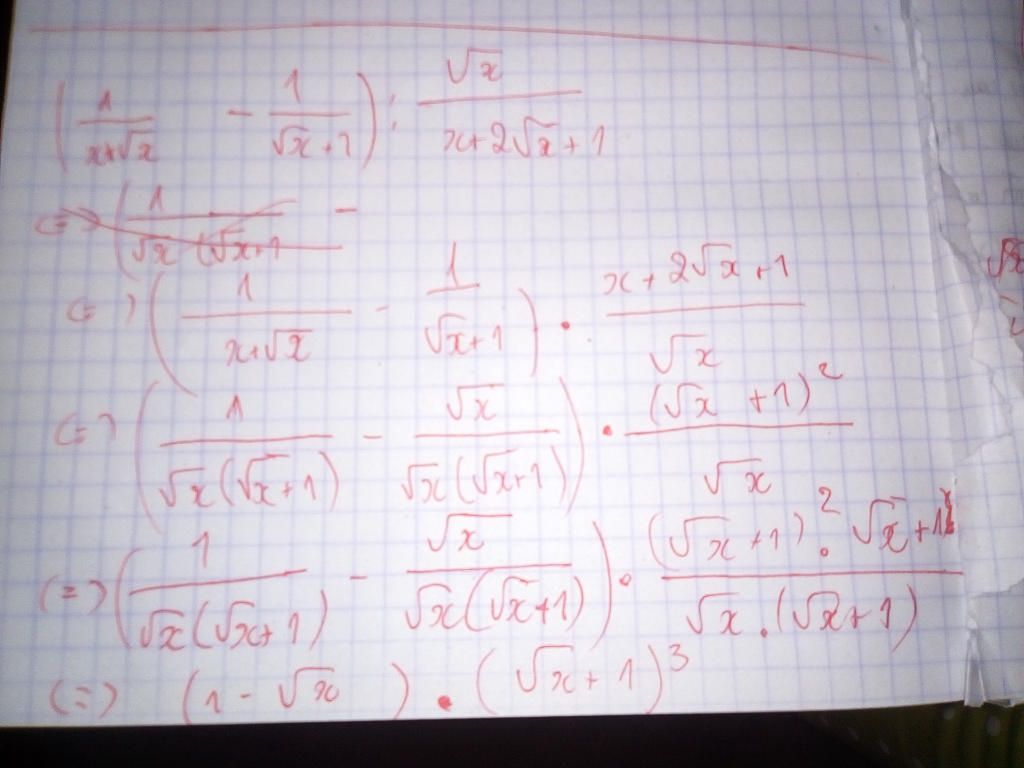 (1/(x+√x) - 1/(√x+1)) : √x/(x+2√x+1)
(=) (1/(√x (√x+1 -
(=) (1/(x+√x) - 1/(√x+1)) · (x+2√x+1)/√x
(=) (1/(√x(√x+1)) - √x/(√x(√x+1))) · (√x +1)²/√x
(=) (1/(√x(√x+1)) - √x/(√x(√x+1))) · ((√x+1)² · √x+1)/(√x · (√x+1))
(=) (1-√x) · (√x+1)³